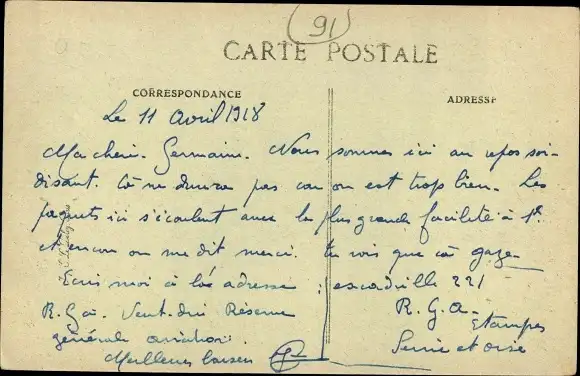 91
CARTE POSTALE
CORRESPONDANCE
ADRESSE
Le 11 Avril 1918
Ma chérie Germaine. Nous sommes ici au repos soi-
disant. Cà ne durera pas car on est trop bien. Les
paquets ici s'écoulent avec la plus grande facilité à 1f.
et encore on me dit merci. tu vois que cà gaze
Ecris moi à l'adresse : escadrille 221
R.G.A. Veut dire Réserve
R.G.A.
générale aviation.
Etampes
Seine et Oise
Meilleurs baisers